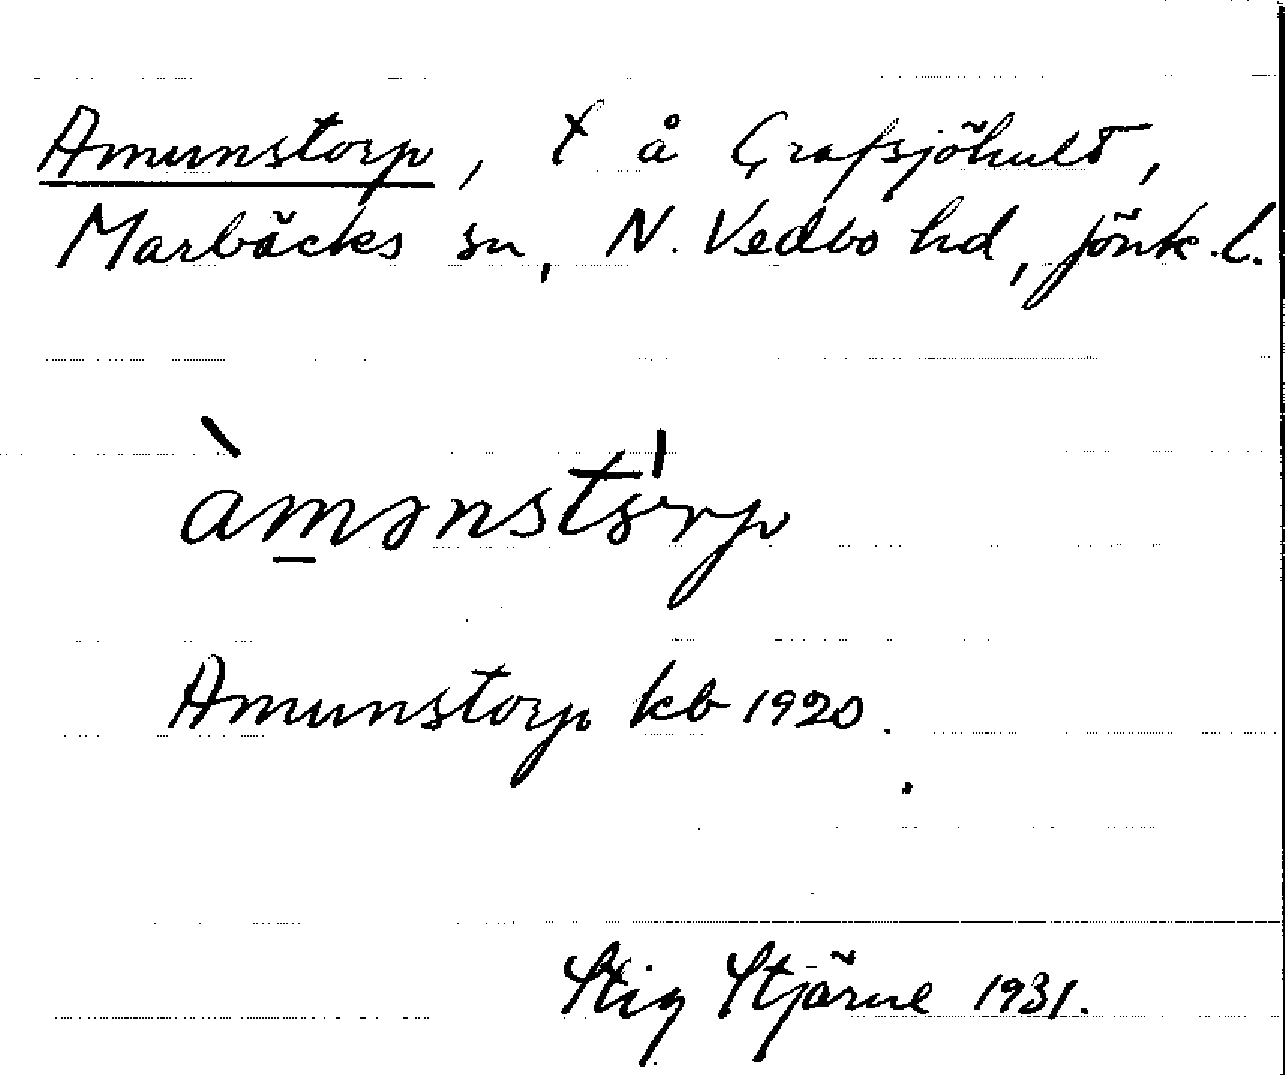 Amunstorp, t å Grafsjöhult,
Marbäcks sn, N. Vedbo hd, Jönk. l.
àmənstɔ'rp
Amunstorp kb 1920.
Stig Stjärne 1931.